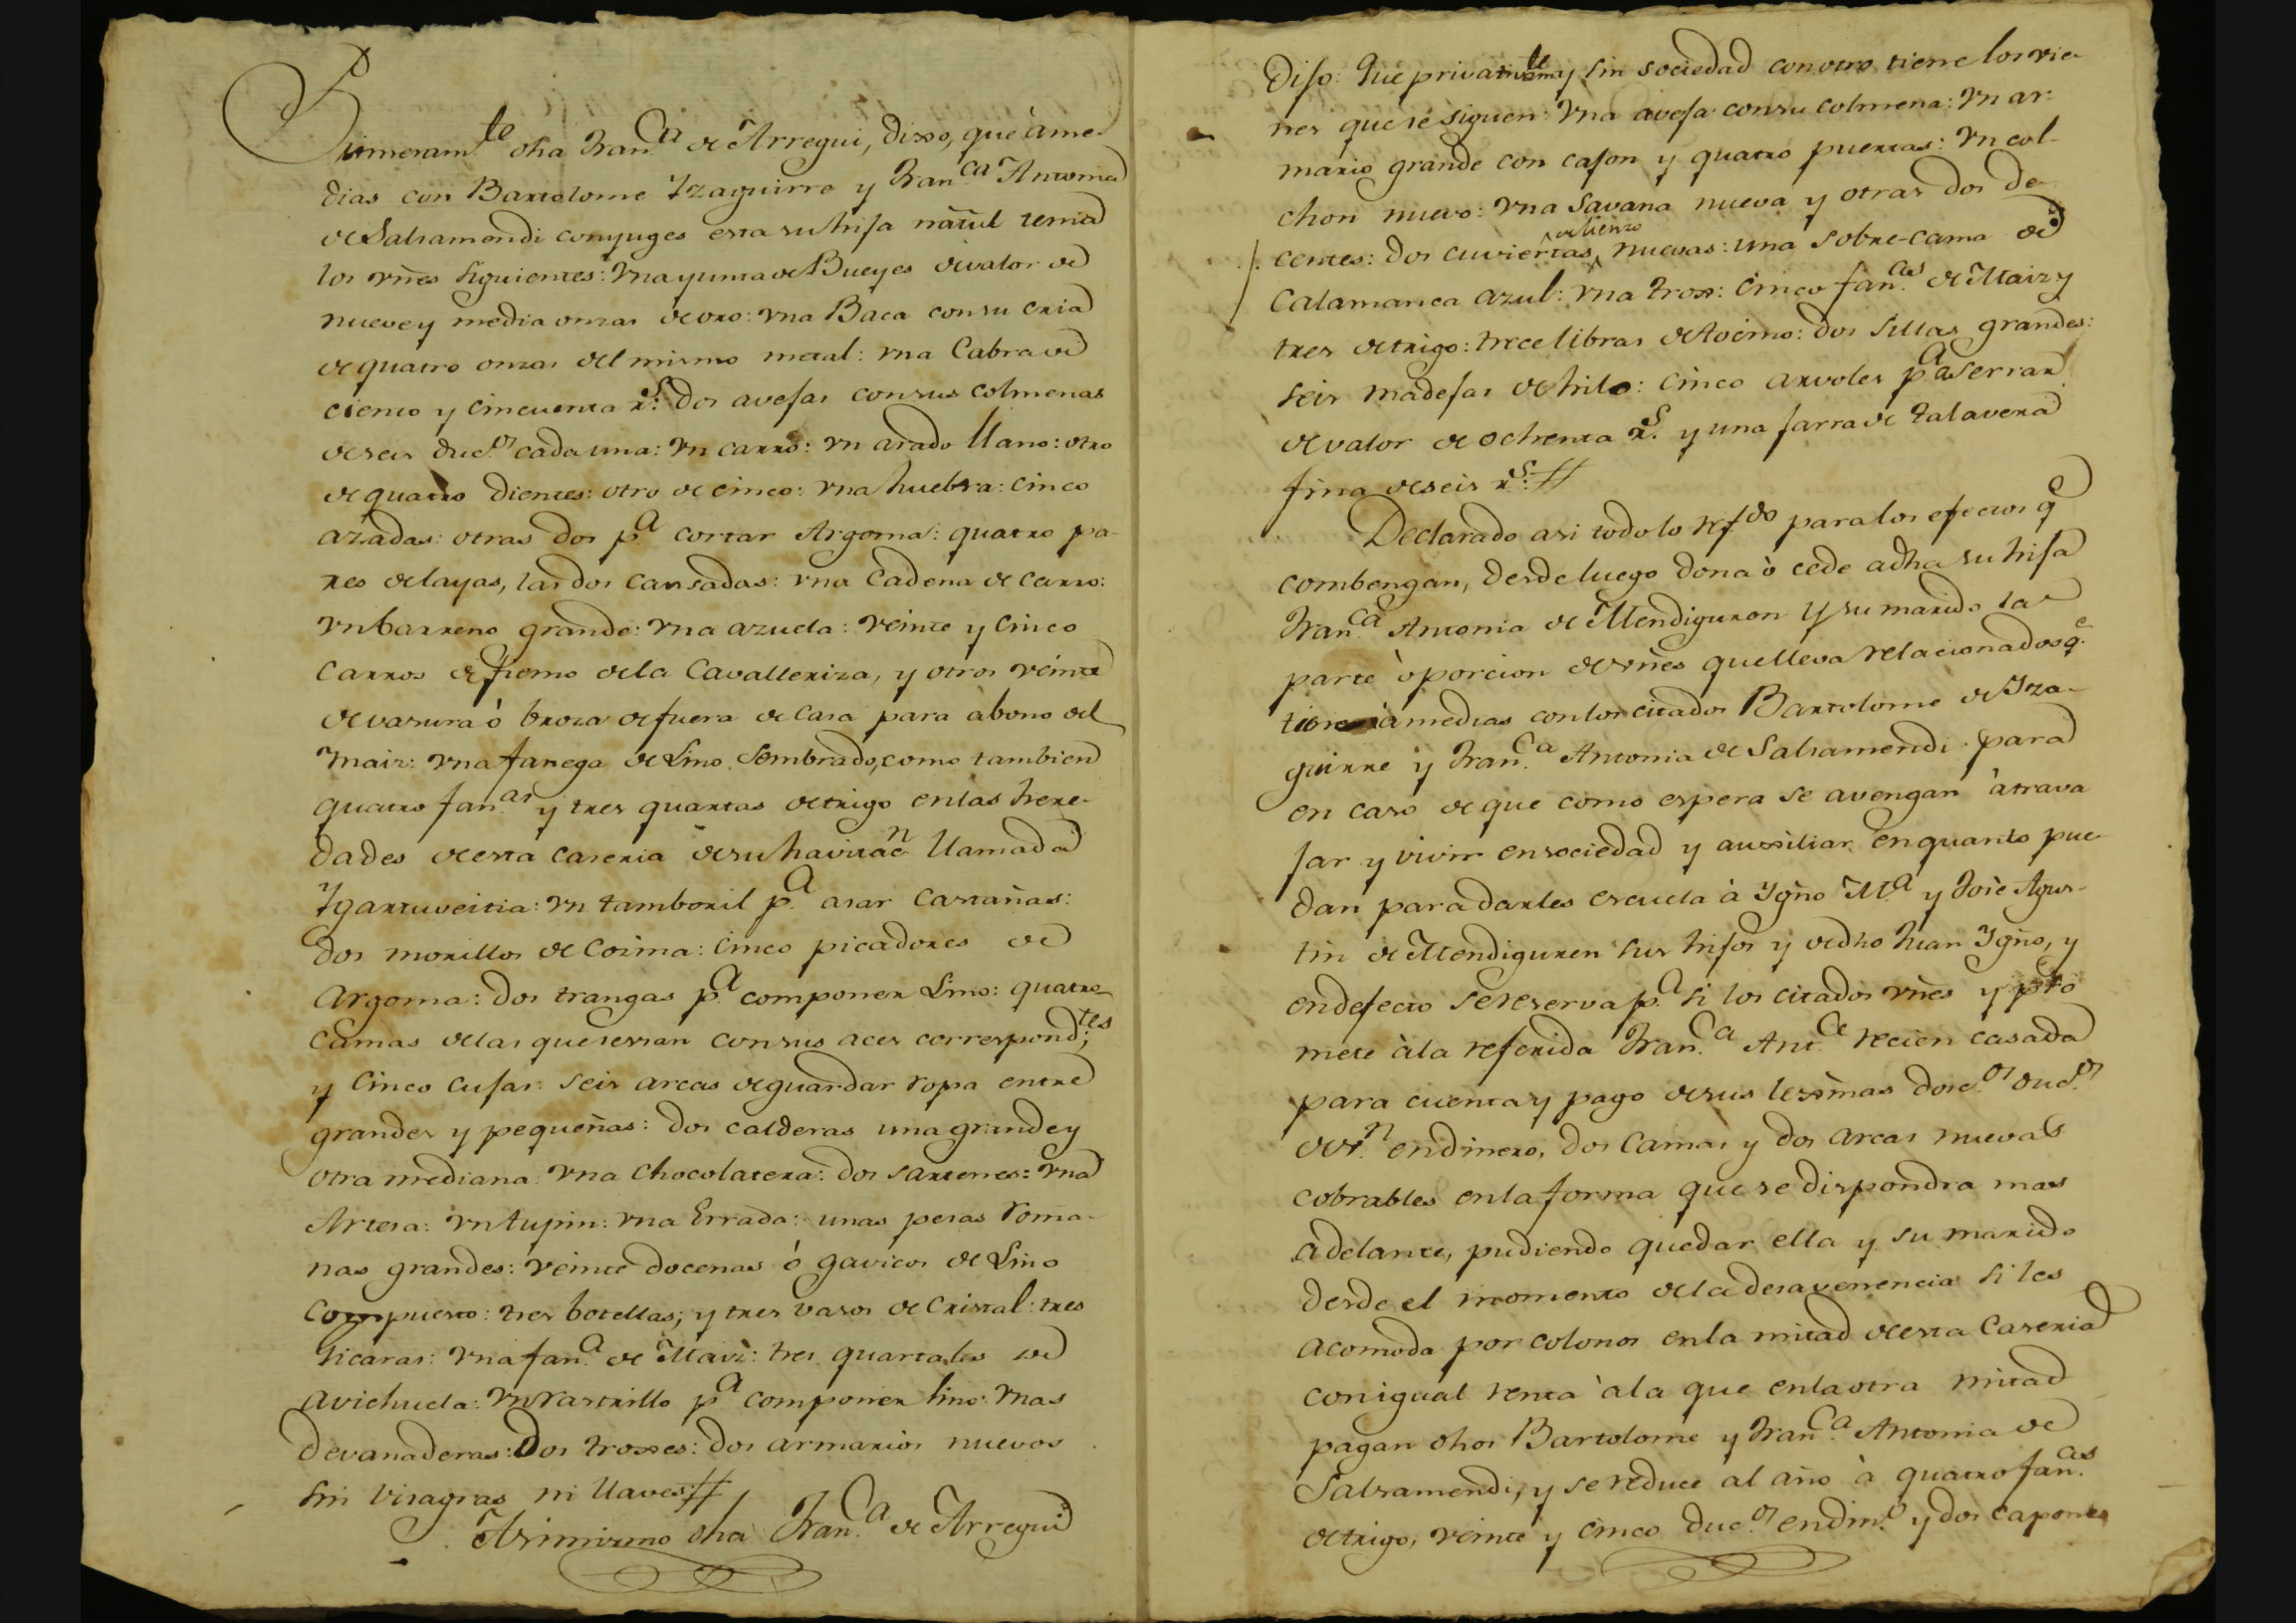 Primeram.te dha Fran.ca de Arregui, dixo, que à me-
dias con Bartolome Yzaguirre y Fran.ca Antonia
de Salsamendi conyuges esta su hija nat̃ul tenia
los vñes siguientes: Vna yunta de Bueyes de valor de
nueve y media onzas de oro: vna Baca con su cria
de quatro onzas del mismo metal: vna Cabra de
ciento y cincuenta r.s: dos avejas con sus colmenas
de seis duc.os cada una: Vn carro: vn arado llano: otro
de quatro dientes: otro de cinco: vna huebra: cinco
azadas: otras dos p.a cortar Argoma: quatro pa-
res de layas, las dos cansadas: vna Cadena de carro:
vn barreno grande: vna azuela: veinte y cinco
carros de fiemo de la Cavalleriza, y otros veinte
de vasura ò broza de fuera de casa para àbono del
Maiz: vna fanega de Lino sembrado, como tambien
quatro fan.as y tres quartas de trigo en las here-
dades de esta caseria de su havitac.n llamada
Ygartuveitia: vn tamboril p.a asar castañas:
dos morillos de Cozina: cinco picadores de
Argoma: dos trangas p.a componer Lino: quatro
camas de las que se usan con sus aces correspond.tes;
y cinco cujas: seis arcas de guardar ropa entre
grandes y pequeñas: dos calderas una grande y
otra mediana: vna chocolatera: dos sartenes: vna
Artesa: vn tupin: vna Errada: unas pesas roma-
nas grandes: veinte docenas ó gavicos de Lino
compuesto: tres botellas; y tres vasos de cristal: tres
Jicaras: vna fan.a de Maiz: tres quartales de
avichuela: vn rastrillo p.a componer lino: vnas
devanaderas: Dos troxes: dos armarios nuevos
sin visagras ni llaves//
Asimismo dha Fran.ca de Arregui
Dijo: Que privativam.te y sin sociedad con otro tiene los vie-
nes que se siguen: Vna aveja con su colmena: Vn ar-
mario grande con cajon y quatro puertas: Vn col-
chon nuevo: vna savana nueva y otras dos de-
centes: dos cuviertas de lienzo nuevas: una sobre-cama de
Calamanca azul: vna trox: cinco fan.as de Maiz y
tres de trigo: trece libras de tocino: dos sillas grandes:
seis madejas de hilo: cinco arvoles p.a aserrar
de valor de ochenta r.s y una jarra de talavera
fina de seis r.s: //
Declarado asi todo lo ref.do para los efectos q.e
combengan, desde luego dona ò cede a dha su hija
Fran.ca Antonia de Mendiguren y su marido la
parte ò porcion de vñes que lleva relacionados q.e
tiene à medias con los citados Bartolome de Yza-
guirre y Fran.ca Antonia de Salsamendi para
en caso de que como espera se avengan à trava
jar y vivir en sociedad y auxiliar en quanto pue-
dan para darles escuela à Ygño M.a y José Agus-
tin de Mendiguren sus hijos y de dho Juan Ygño, y
en defecto se reserva p.a si los citados vñes y pro
mete à la referida Fran.ca Ant.a recien casada
para cuenta y pago de sus lexîmas dosc.os duc.os
de v.n en dinero, dos camas y dos arcas nuevas
cobrables en la forma que se dispondra mas
adelante, pudiendo quedar ella y su marido
desde el momento de la desavenencia si les
acomoda por colonos en la mitad de esta Caseria
con igual renta à la que en la otra mitad
pagan dhos Bartolome y Fran.ca Antonia de
Salsamendi, y se reduce al año à quatro fan.as
de trigo, veinte y cinco duc.os en din.o y dos capones